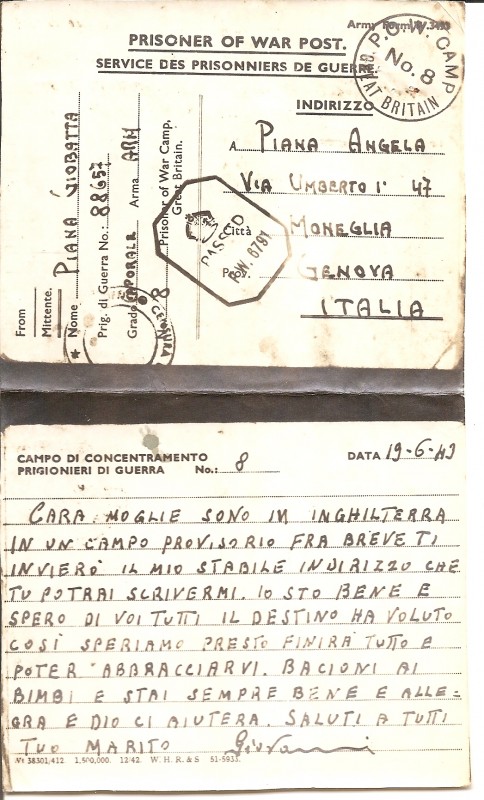 Army Form W.3493
PRISONER OF WAR POST.
SERVICE DES PRISONNIERS DE GUERRE
P.O.W. CAMP
No. 8
GREAT BRITAIN
INDIRIZZO
A PIANA ANGELA
VIA UMBERTO I° 47
Città MONEGLIA
GENOVA
ITALIA
From
Mittente.
Nome PIANA GIOBATTA
Prig. di Guerra No.: 88657
Grado CAPORALE Arma ARM
8 Prisoner of War Camp,
Great Britain.
PASSED
P.W. 6791
CENSURA
CAMPO DI CONCENTRAMENTO
PRIGIONIERI DI GUERRA No.: 8
DATA 19-6-43
CARA MOGLIE SONO IN INGHILTERRA
IN UN CAMPO PROVISORIO FRA BREVE TI
INVIERÒ IL MIO STABILE INDIRIZZO CHE
TU POTRAI SCRIVERMI. IO STO BENE E
SPERO DI VOI TUTTI IL DESTINO HA VOLUTO
COSÌ SPERIAMO PRESTO FINIRÀ TUTTO E
POTER ABBRACCIARVI. BACIONI AI
BIMBI E STAI SEMPRE BENE E ALLE-
GRA E DIO CI AIUTERA. SALUTI A TUTTI
TUO MARITO Giovanni
Wt 38301/412. 1,500,000. 12/42. W. H. R. & S 51-5933.